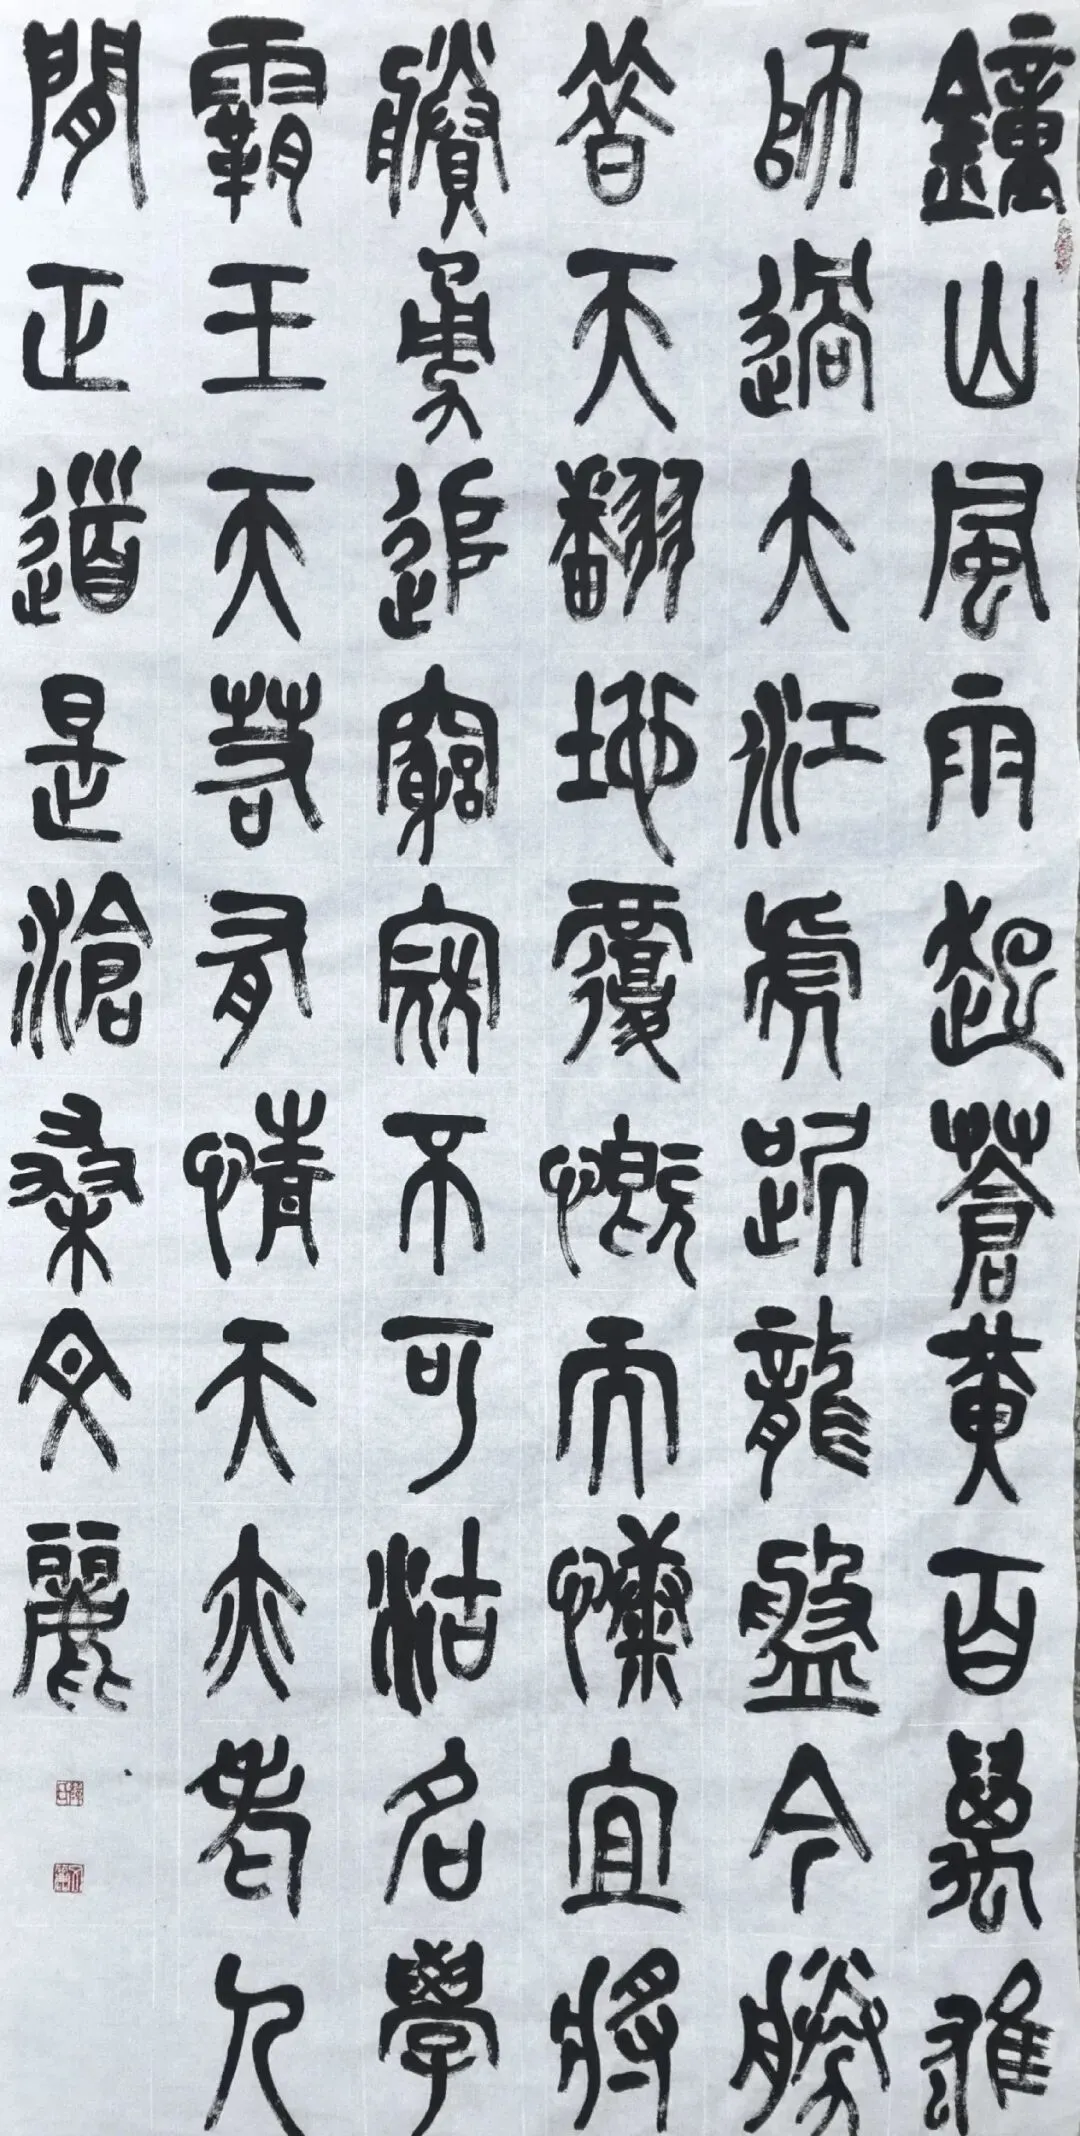 鐘山風雨起蒼黃百萬雄
師過大江虎踞龍盤今勝
昔天翻地覆慨而慷宜將
賸勇追窮寇不可沽名學
霸王天若有情天亦老人
閒正道是滄桑文麗